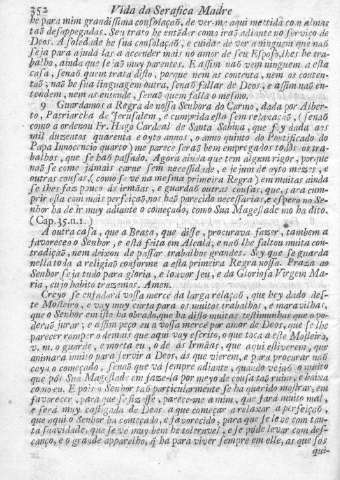 352 Vida da Serafica Madre
he para mim grandissima consolaçaõ, de ver-me aqui mettida com almas
taõ desappegadas. Seu trato he entender como iraõ adiante no serviço de
Deos. A soledade he sua consolaçaõ, e cuidar de ver a ninguem que naõ
seja para ajudà-las a accender mais no amor de seu Esposo, lhes he tra-
balho, ainda que sejaõ muy parentes. E assim naõ vem ninguem a esta
casa, senaõ quem trata disto, porque nem as contenta, nem os conten-
taõ, naõ he sua linguagem outra, senaõ fallar de Deos, e assim naõ en-
tendem, nem as entende, senaõ quem falla o mesmo.
9 Guardamos a Regra de nossa Senhora do Carmo, dada por Alber-
to, Patriarcha de Jerusalem, e cumprida esta sem relaxaçaõ, (senaõ
como a ordenou Fr. Hugo Cardeal de Santa Sabina, que foy dada aos
mil duzentos quarenta e oyto annos, o anno quinto do Pontificado do
Papa Innocencio quarto) me parece seraõ bem empregados todos os tra-
balhos, que se haõ passado. Agora ainda que tem algum rigor, porque
naõ se come jàmais carne sem necessidade, e jejum de oyto mezes, e
outras cousas (como se ve na mesma primeira Regra) em muitas ainda
se lhes faz pouco às irmãas, e guardaõ outras cousas, que, para cum-
prir esta com mais perfeiçaõ, nos haõ parecido necessarias, e espero no Se-
nhor ha de ir muy adiante o começado, como Sua Magestade mo ha dito.
( Cap. 35. n. 1. )
A outra casa, que a Beata, que disse, procurava fazer, tambem a
favoreceo o Senhor, e està feita em Alcalà, e naõ lhe faltou muita con-
tradiçaõ, nem deixou de passar trabalhos grandes. Sey que se guarda
nella toda a religiaõ conforme a esta primeira Regra nossa. Praza ao
Senhor seja tudo para gloria, e louvor seu, e da Gloriosa Virgem Ma-
ria, cujo habito trazemos. Amen.
Creyo se enfadarà vossa mercè da larga relaçaõ, que hey dado des-
te Mosteiro, e vay muy curta para os muitos trabalhos, e maravilhas,
que o Senhor em isto ha obrado, que ha disto muitas testimunhas que o po-
deraõ jurar, e assim peço eu a vossa mercè por amor de Deos, que se lhe
parecer romper o demais que aqui vay escrito, o que toca a este Mosteiro,
v. m. o guarde, e morta eu, o dè às Irmãas, que aqui estiverem, que
animarà muito para servir a Deos, às que vierem, e para procurar naõ
caya o começado, senaõ que và sempre adiante, quando vejaõ o muito
que pôs Sua Magestade em faze-la por meyo de cousa taõ ruim, e baixa
como eu. E pois o Senhor taõ particularmente se ha querido mostrar, em
favorecer, para que se fizesse, parece-me a mim, que farà muito mal,
e serà muy castigada de Deos, a que começar a relaxar a perfeiçaõ,
que aqui o Senhor ha começado, e favorecido, para que se leve com tan-
ta suavidade, que se ve muy bem he toleravel, e se póde levar com des-
canço, e o grande apparelho, q̃ ha para viver sempre em elle, as que sós
qui-